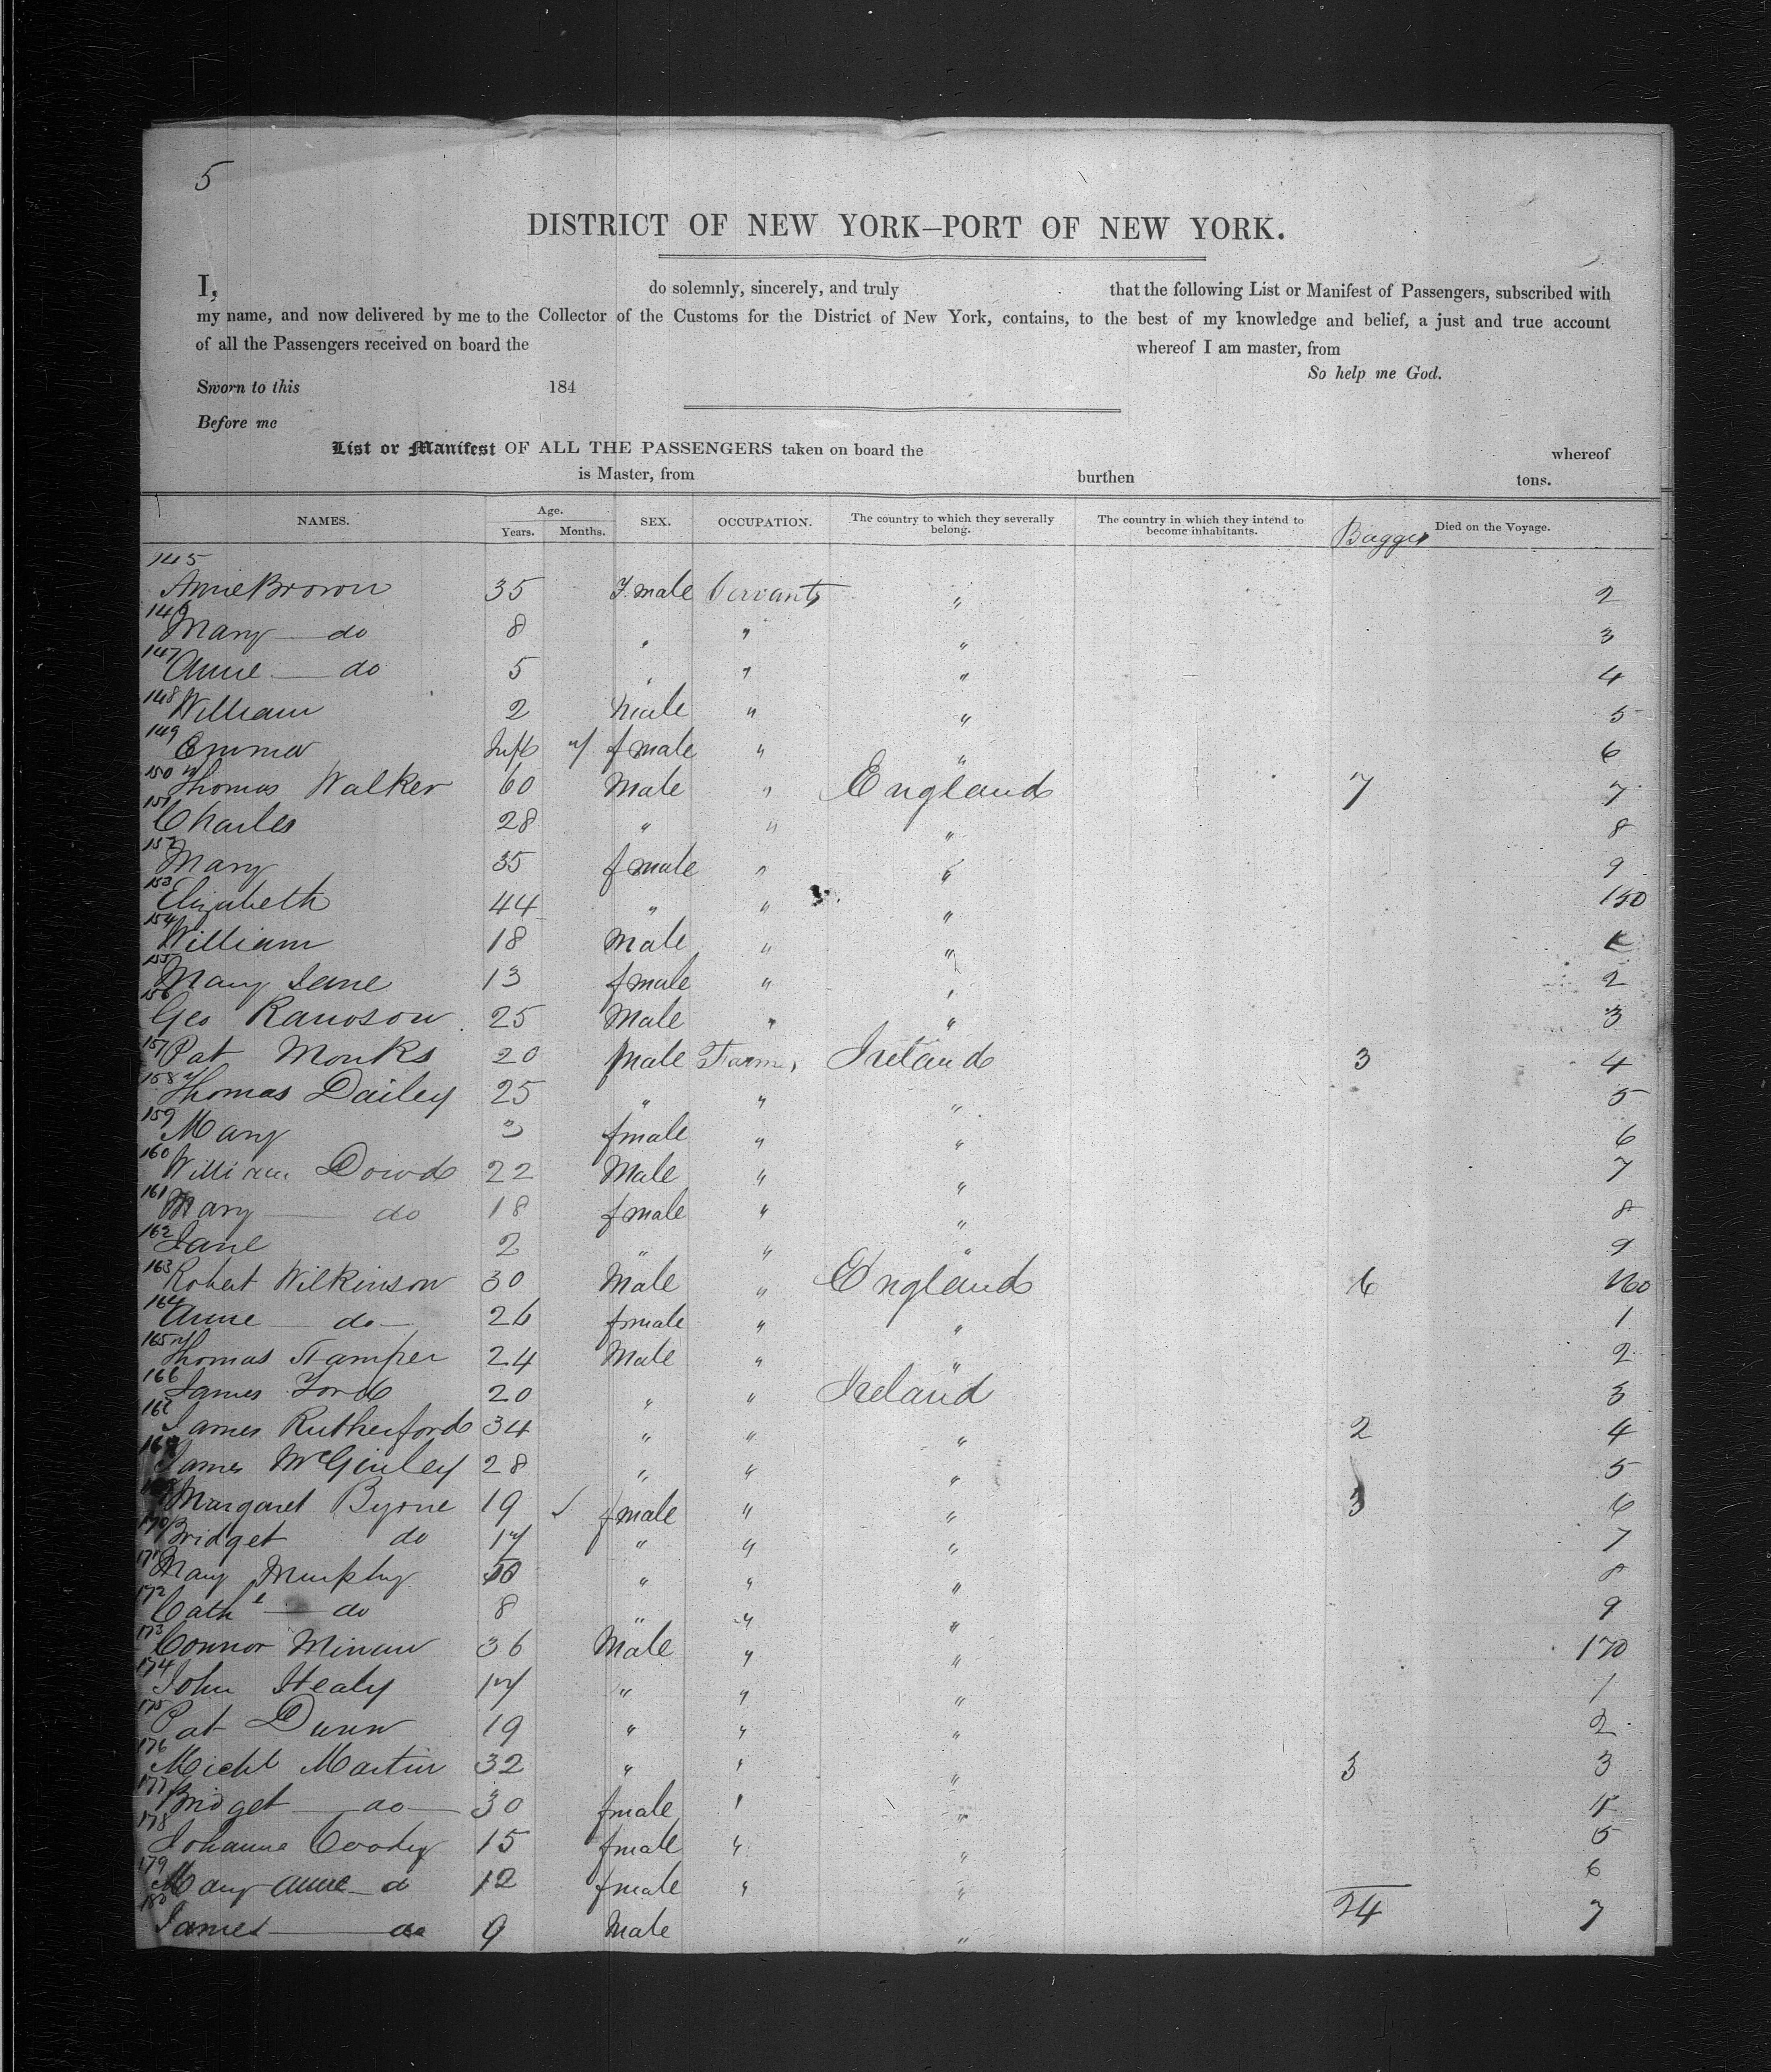 5
DISTRICT OF NEW YORK–PORT OF NEW YORK.
I, do solemnly, sincerely, and truly that the following List or Manifest of Passengers, subscribed with
my name, and now delivered by me to the Collector of the Customs for the District of New York, contains, to the best of my knowledge and belief, a just and true account
of all the Passengers received on board the whereof I am master, from
So help me God.
Sworn to this 184
Before me
List or Manifest OF ALL THE PASSENGERS taken on board the whereof
is Master, from burthen tons.
NAMES. Age. Years. Months. SEX. OCCUPATION. The country to which they severally belong. The country in which they intend to become inhabitants. Died on the Voyage.
145 Anne Brown 35 F. male Servants " 2
146 Mary — do 8 " " " 3
147 Anne — do 5 " " " 4
148 William 2 Male " " 5
149 Emma Inft f male " " 6
150 Thomas Walker 60 Male " England 7 7
151 Charles 28 " " " 8
152 Mary 35 f male " " 9
153 Elizabeth 44 " " " 150
154 William 18 Male " "
155 Mary Jane 13 f male " " 2
156 Geo 25 Male " " 3
157 Pat Monks 20 Male Farmer Ireland 3 4
158 Thomas Dailey 25 " " " 5
159 Mary 3 fmale " " 6
160 William Dowd 22 Male " " 7
161 Mary — do 18 fmale " " 8
162 Jane 2 " " " 9
163 Robert Wilkinson 30 Male " England 6 160
164 Anne — do — 26 fmale " " 1
165 Thomas Stamper 24 Male " " 2
166 James Ford 20 " " Ireland 3
167 James Rutherford 34 " " " 2 4
168 James McGinley 28 " " " 5
Margaret Byrne 19 ✓ fmale " " 3 6
170 Bridget do 17 " " " 7
171 Mary Murphy 10 " " " 8
172 Cathe — do 8 " " " 9
173 Connor 36 Male " " 170
174 John Healy 17 " " " 1
175 Pat Dunn 19 " " " 2
176 Michl Martin 32 " " " 3 3
177 Bridget — do — 30 fmale " "
178 Johanna 15 fmale " " 5
179 Mary Anne — d 12 fmale " " 6
180 James — do 9 Male " 24 7